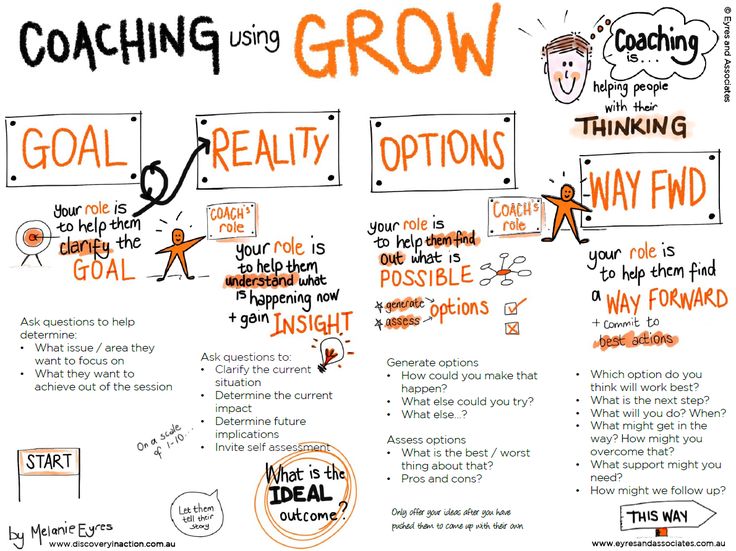 COACHING using GROW
© Eyres and Associates
Coaching
is...
helping people
with their
THINKING
GOAL
your role is
to help them
clarify the
GOAL
Ask questions to help
determine:
• What issue / area they
want to focus on
• What they want to
achieve out of the session
START
by Melanie Eyres
www.discoveryinaction.com.au
REALITY
COACH's
role
your role is
to help them
understand what
is happening now
+ gain INSIGHT
Ask questions to:
• Clarify the current
situation
• Determine the current
impact
• Determine future
implications
• Invite self assessment
On a scale
of 1-10...
Let them
tell their
story
What is the
IDEAL
outcome?
OPTIONS
your role is
to help them find
out what is
POSSIBLE
generate
assess
options
Generate options
• How could you make that
happen?
• What else could you try?
• What else...?
Assess options
• What is the best / worst
thing about that?
• Pros and cons?
Only offer your ideas after you have
pushed them to come up with their own
WAY FWD
COACH's
role
your role is
to help them find
a WAY FORWARD
+ commit to
best actions
• Which option do you
think will work best?
• What is the next step?
• What will you do? When?
• What might get in the
way? How might you
overcome that?
• What support might you
need?
• How might we follow up?
THIS WAY
www.eyresandassociates.com.au